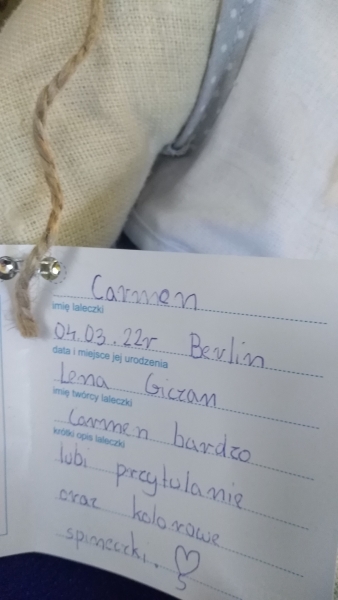 Carmen
imię laleczki
04.03.22r Berlin
data i miejsce jej urodzenia
Lena Giczan
imię twórcy laleczki
Carmen bardzo
krótki opis laleczki
lubi przytulanie
oraz kolorowe
spineczki. ♡